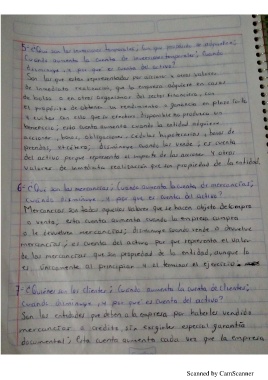 5-¿Que son las inversiones temporales, con que proposito se adquieren,
Cuando aumenta la cuenta de inversiones temporales, Cuando
disminuye y por que es cuenta del activo?
Son las que estan representadas por acciones u otros valores
de inmediata realizacion, que la empresa adquiere en
de bolsa o en otros organismos del sector financiero, con
el proposito de obtener un rendimiento o ganancia en plazos
y evitar con esto que el efectivo disponible no produzca un
beneficio; esta cuenta aumenta cuando la entidad adquiere
acciones, bonos, obligaciones, cedulas hipotecarias, bonos de
prendas, etcetera, disminuye cuando las vende; es cuenta
del activo porque representa el importe de las acciones y otros
valores de inmediata realizacion que son propiedad de la entidad.
6-¿Que son las mercancias; Cuando aumenta la cuenta de mercancias;
Cuando disminuye y por que es cuenta del activo?
Mercancias son todos aquellos valores que se hacen objeto de compra
o venta, esta cuenta aumenta cuando la empresa compra
o le devuelven mercancias; disminuye cuando vende o devuelve
mercancias, es cuenta del activo por que representa el valor
de las mercancias que son propiedad de la entidad, aunque la
es unicamente al principiar y al terminar el ejercicio.
7-¿Quienes son los clientes; Cuando aumenta la cuenta de clientes;
Cuando disminuye y por que es cuenta del activo?
Son las entidades que deben a la empresa por haberles vendido
mercancias a credito, sin exigirles especial garantia
documental; Esta cuenta aumenta cada vez que la empresa
Scanned by CamScanner